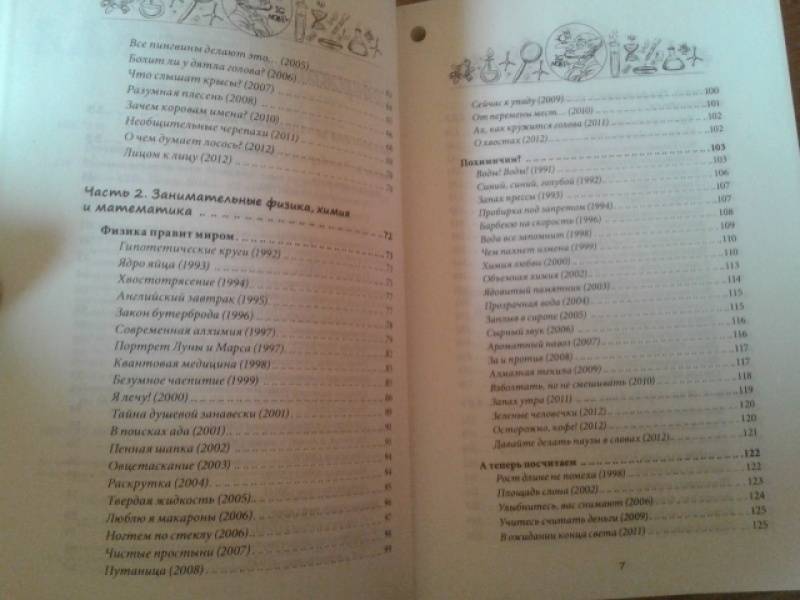 Все пингвины делают это... (2005)
Болит ли у дятла голова? (2006)
Что слышат крысы? (2007)
Разумная плесень (2008)
Зачем коровам имена? (2010)
Необщительные черепахи (2011)
О чем думает лосось? (2012)
Лицом к лицу (2012)
Часть 2. Занимательные физика, химия
и математика 72
Физика правит миром 73
Гипотетические круги (1992)
Ядро яйца (1993)
Хвостотрясение (1994)
Английский завтрак (1995)
Закон бутерброда (1996)
Современная алхимия (1997)
Портрет Луны и Марса (1997)
Квантовая медицина (1998)
Безумное чаепитие (1999)
Я лечу! (2000)
Тайна душевой занавески (2001)
В поисках ада (2001)
Пенная шапка (2002)
Овцетаскание (2003)
Раскрутка (2004)
Твердая жидкость (2005)
Люблю я макароны (2006)
Ногтем по стеклу (2006)
Чистые простыни (2007)
Путаница (2008)
Сейчас я упаду (2009) 100
От перемены мест... (2010) 101
Ах, как кружится голова (2011) 102
О хвостах (2012) 102
Похимичим? 103
Воды! Воды! (1991) 103
Синий, синий, голубой (1992) 106
Запах прессы (1993) 107
Пробирка под запретом (1994) 107
Барбекю на скорость (1996) 108
Вода все запомнит (1998) 109
Чем пахнет измена (1999) 110
Химия любви (2000) 110
Объемная химия (2002) 113
Ядовитый памятник (2003) 114
Прозрачная вода (2004) 115
Заплыв в сиропе (2005) 115
Сырный звук (2006) 116
Ароматный навоз (2007) 116
За и против (2008) 117
Алмазная текила (2009) 117
Взболтать, но не смешивать (2010) 118
Запах утра (2011) 119
Зеленые человечки (2012) 120
Осторожно, кофе! (2012) 120
Давайте делать паузы в словах (2012) 121
А теперь посчитаем 122
Рост длине не помеха (1998) 122
Площадь слона (2002) 123
Улыбнитесь, вас снимают (2006) 124
Учитесь считать деньги (2009) 125
В ожидании конца света (2011) 125
7